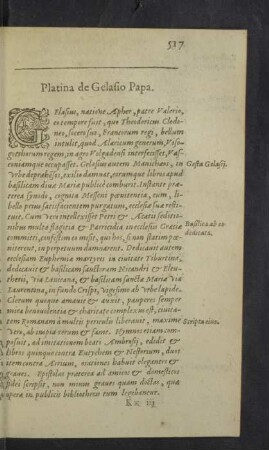 517
Platina de Gelasio Papa.
GElasius, natione Apher, patre Valerio,
eo tempore fuit, quo Theodoricus Clodo-
ueo, socero suo, Francorum regi, bellum
intulit, quod Alaricum generum, Viso-
gotthorum regem, in agro interfecisset, Vas-
coniamque occupasset. Gelasius autem Manichæos, in
Gesta Gelasij.
Vrbe deprehensos, exilio damnat, eorumque libros apud
basilicam diuæ Mariæ publicè comburit. Instante præ-
terea synodo, cognita Messeni pœnitentia, eum,
libello prius satisfacientem purgatum, ecclesiæ suæ resti-
tuit. Cum verò intellexisset Petri &
nibus multa flagitia & Parricidia in ecclesiis Græciæ
committi, confestim eos misit, qui hos, si non statim pœ-
niterent, in perpetuum damnarent. Dedicauit autem
Basilica ab eo
dedicata.
ecclesiam Euphemiæ martyris in ciuitate Tiburtina,
dedicauit & basilicam sanctorum Nicandri & Eleu-
therij, via Lauicana, & basilicam sanctæ Mariæ via
Laurentina, in fundo Crispi, vigesimo ab vrbe lapide.
Clerum quoque amauit & auxit, pauperes semper
mira beneuolentia & charitate complexus est, ciuita-
tem Romanam à multis periculis liberauit, maximè
verò, ab inopia rerum & fame. Hymnos etiam com-
Scripta eius.
posuit, ad imitationem beati Ambrosij, edidit &
libros quinque contra Eutychem & Nestorium, duos
item contra Arrium, orationes habuit elegantes &
graues. Epistolas præterea ad amicos & domesticos
fidei scripsit, non minus graues quàm doctas, quæ
opera in publicis bibliothecis tum legebantur.
Kk iij